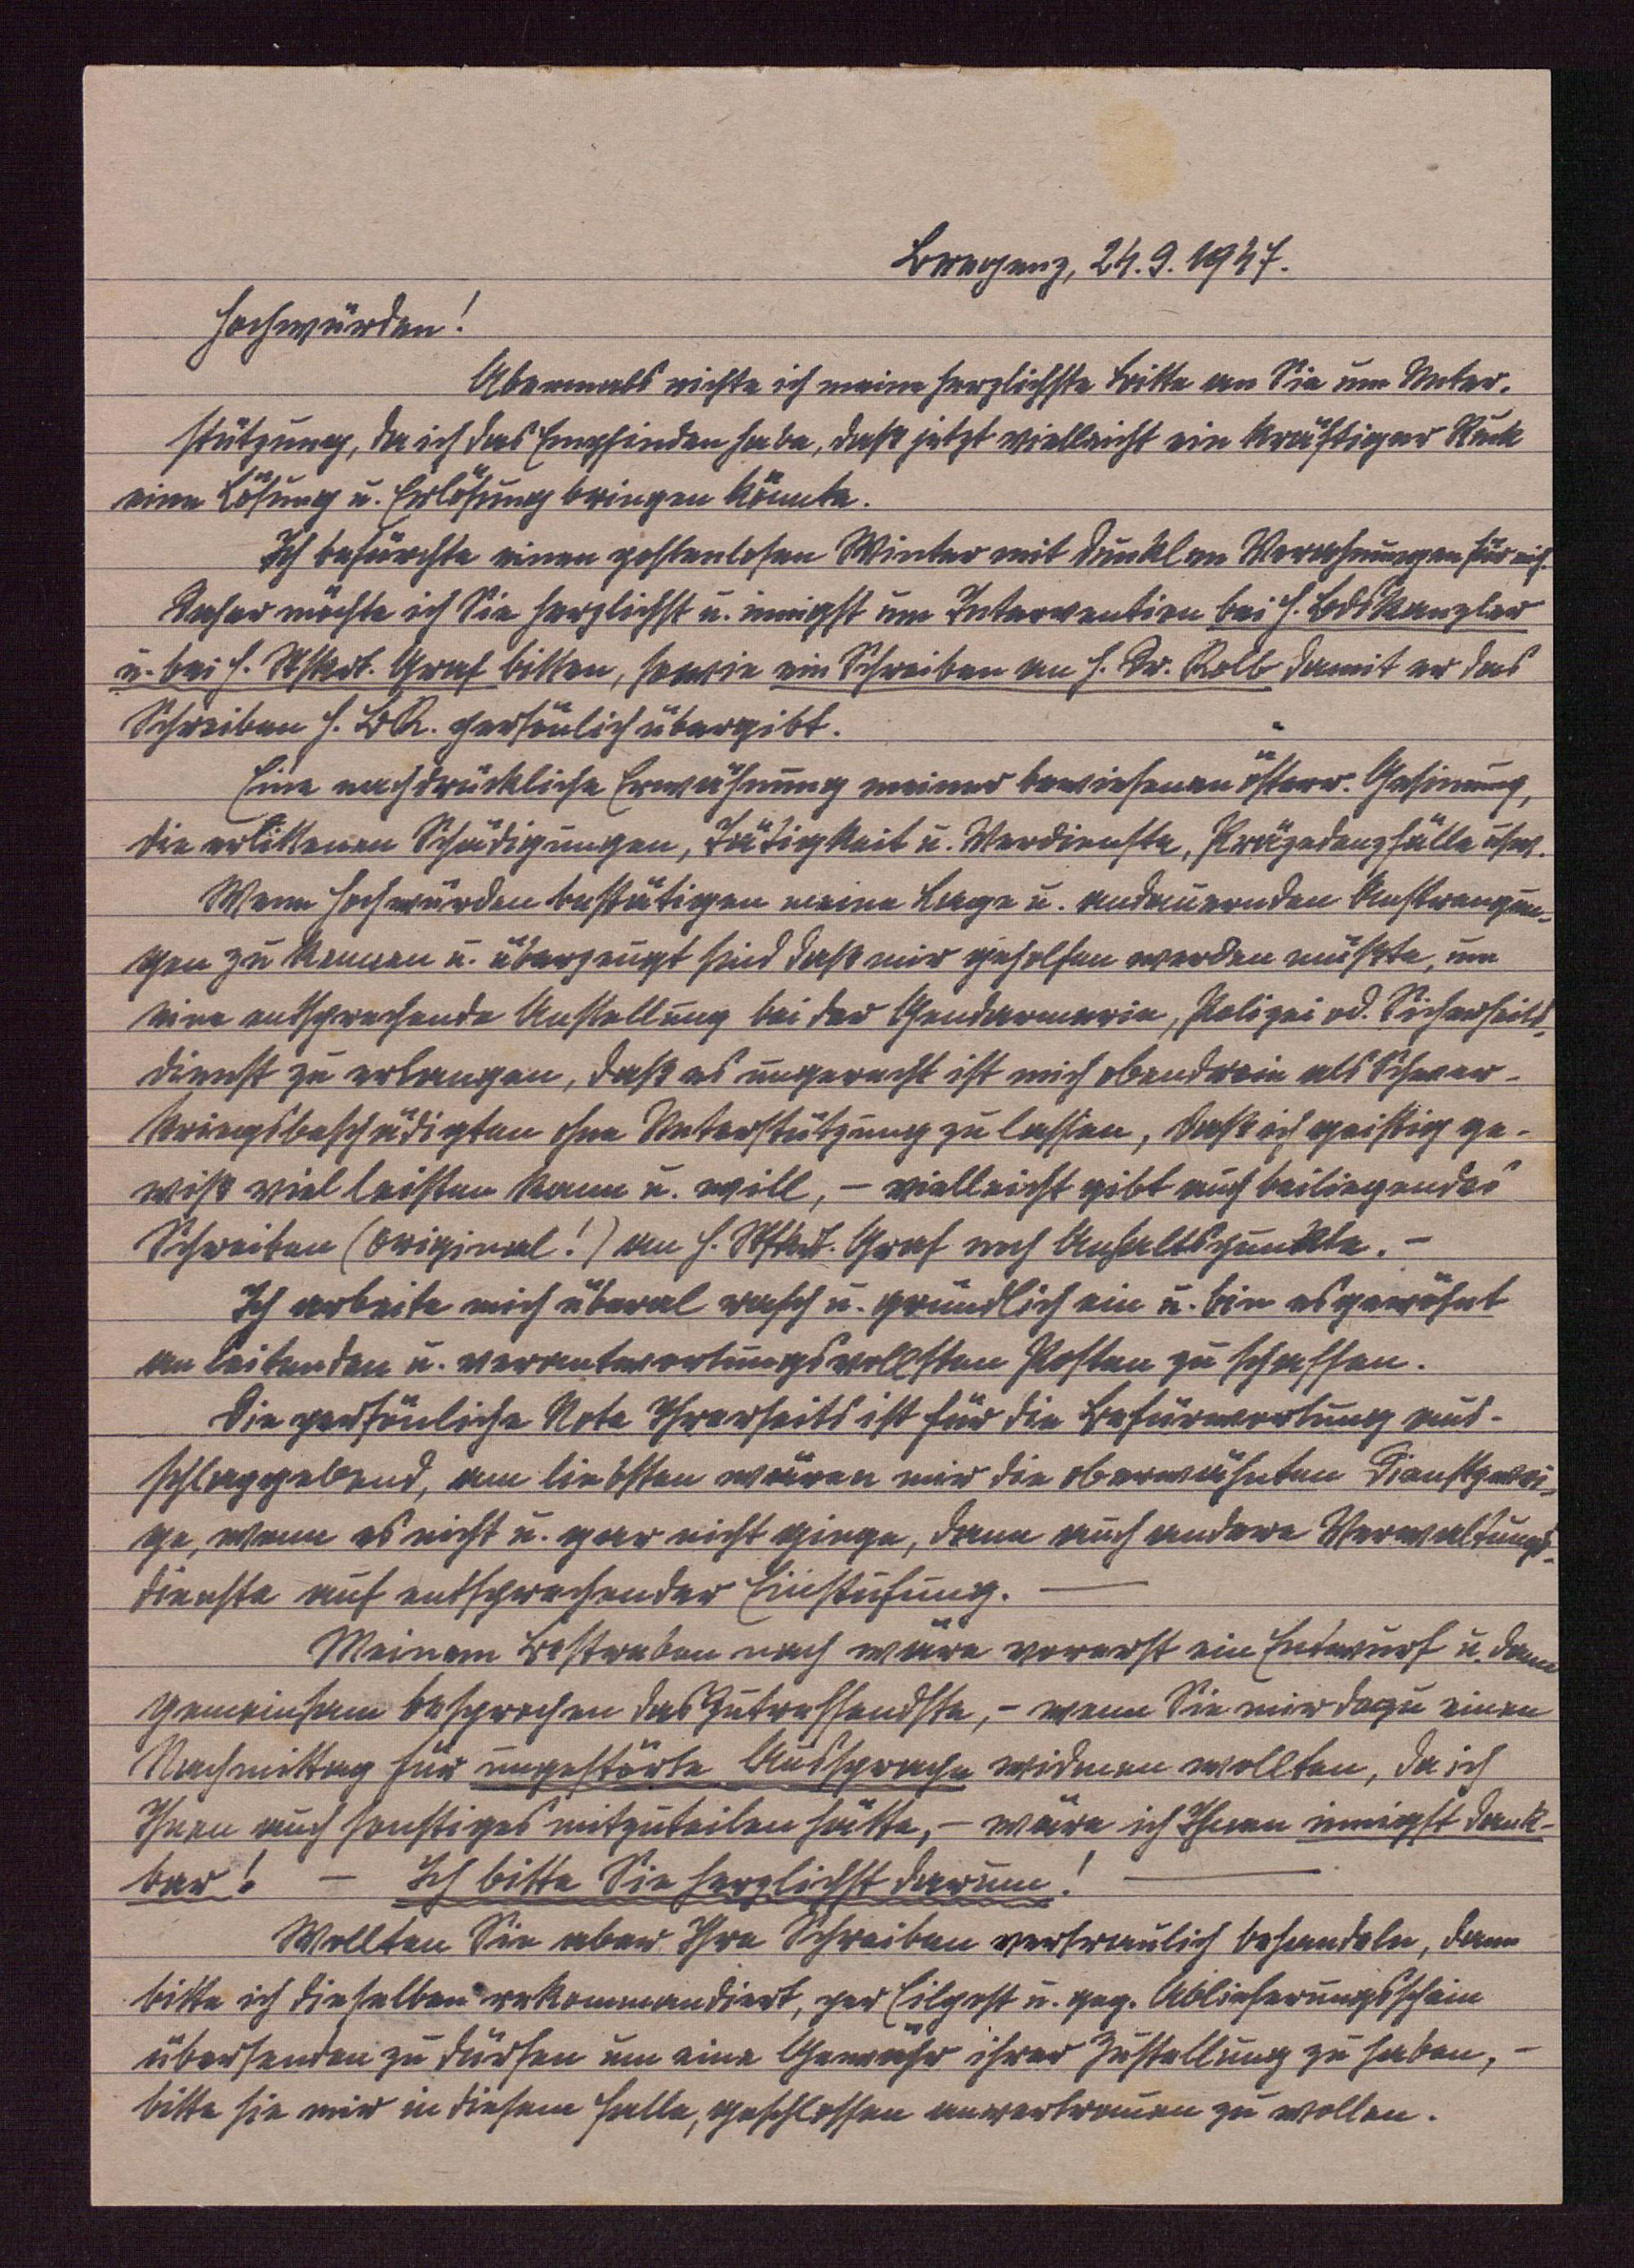 Bregenz, 24.9.1947.
Hochwürden!
Abermals richte ich meine herzlichste Bitte an Sie um Unter-
stützung, da ich das Empfinden habe, daß jetzt vielleicht ein kräftiger Ruck
eine Lösung u. Erlösung bringen könnte.
Ich befürchte einen postenlosen Winter mit dunklen Vorahnungen für mich.
Daher möchte ich Sie herzlichst u. innigst um Intervention bei H. Bdskanzler
u. bei H. Stskrt. Graf bitten, sowie ein Schreiben an H. Dr. Kolb damit er das
Schreiben H. BK. persönlich übergibt.
Eine nachdrückliche Erwähnung meiner bewiesenen österr. Gesinnung,
die erlittenen Schädigungen, Tätigkeit u. Verdienste, Präzedenzfälle usw.
Wenn Hochwürden bestätigen meine Lage u. andauernden Anstrengun-
gen zu kennen u. überzeugt sind daß mir geholfen werden müßte, um
eine entsprechende Anstellung bei der Gendarmerie, Polizei od. Sicherheits-
dienst zu erlangen, daß es ungerecht ist mich obendrein als Schwer-
kriegsbeschädigten ohne Unterstützung zu lassen, daß ich geistig ge-
wiß viel leisten kann u. will, – vielleicht gibt auch beiliegendes
Schreiben (Original!) an H. Stskrt. Graf noch Anhaltspunkte. –
Ich arbeite mich überal rasch u. gründlich ein u. bin es gewöhnt
an leitenden u. verantwortungsvollsten Posten zu schaffen.
Die persönliche Note Ihrerseits ist für die Befürwortung aus-
schlaggebend, am liebsten wären mir die oberwähnten Dienstzwei-
ge, wenn es nicht u. gar nicht ginge, dann auch andere Verwaltungs-
dienste auf entsprechender Einstufung. —
Meinem Bestreben nach wäre vorerst ein Entwurf u. dann
gemeinsam besprochen das Zutreffendste, – wenn Sie mir dazu einen
Nachmittag für ungestörte Aussprache widmen wollten, da ich
Ihnen auch sonstiges mitzuteilen hätte, – wäre ich Ihnen innigst dank-
bar! – Ich bitte Sie herzlichst darum! —
Wollten Sie aber Ihre Schreiben vertraulich behandeln, dann
bitte ich dieselben rekommandiert, per Eilpost u. geg. Ablieferungsschein
übersenden zu dürfen um eine Gewähr ihrer Zustellung zu haben, –
bitte sie mir in diesem Falle, geschlossen anvertrauen zu wollen.